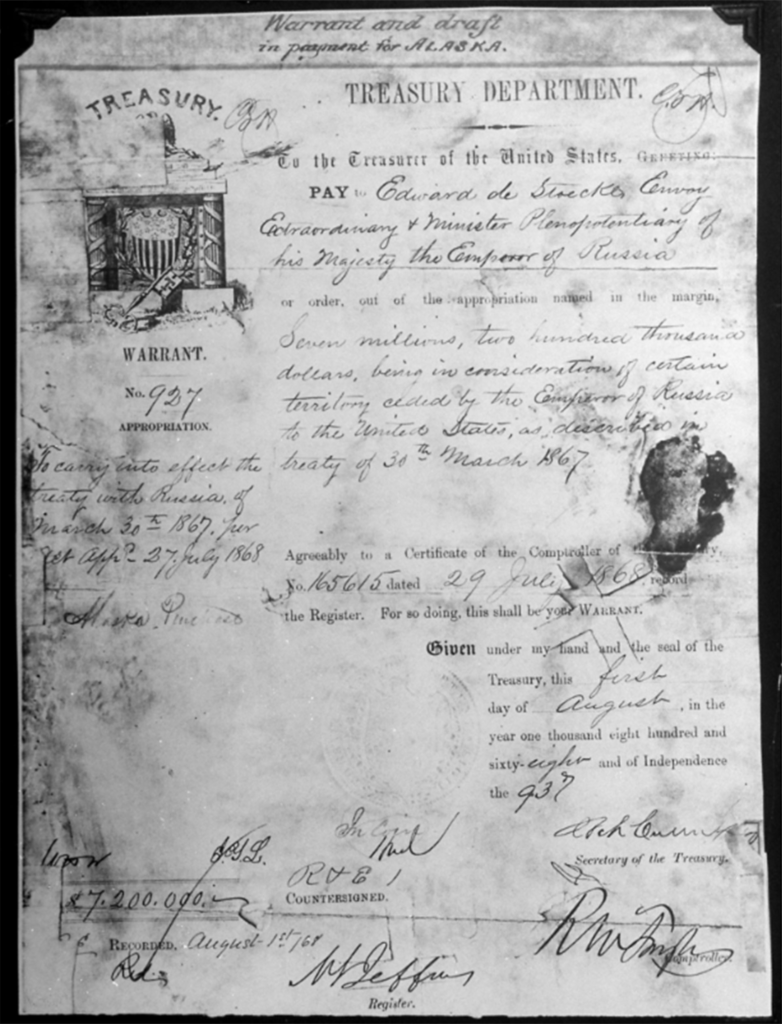 Warrant and draft
in payment for ALASKA.
TREASURY.
TREASURY DEPARTMENT.
To the Treasurer of the United States, GREETING:
PAY to Edward de Stoeckl, Envoy
Extraordinary & Minister Plenopotentiary of
his Majesty the Emperor of Russia
or order, out of the appropriation named in the margin,
Seven millions, two hundred thousand
dollars, being in consideration of certain
territory ceded by the Emperor of Russia
to the United States, as described in
treaty of 30th March 1867
WARRANT.
No. 927
APPROPRIATION.
To carry into effect the
treaty with Russia, of
March 30th 1867. per
act App. 27. July 1868
Alaska Purchase
Agreably to a Certificate of the Comptroller of the
No. 165615 dated 29 July 1868, record
the Register. For so doing, this shall be your WARRANT.
Given under my hand and the seal of the
Treasury, this first
day of August, in the
year one thousand eight hundred and
sixty-eight and of Independence
the 937
Secretary of the Treasury.
R & E 1
COUNTERSIGNED.
$7.200.000.
RECORDED, August 1st/68
Comptroller.
Register.